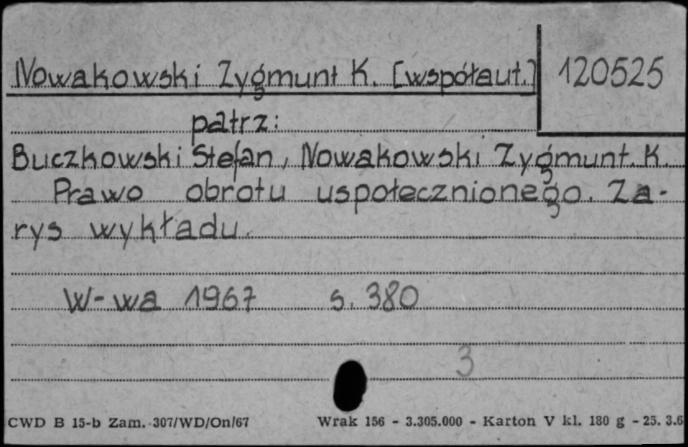 Nowakowski Zygmunt K. [współaut.] 120525
patrz:
Buczkowski Stefan, Nowakowski Zygmunt K.
Prawo obrotu uspołecznionego. Za-
rys wykładu.
W-wa 1967 s. 380
3
CWD B 15-b Zam. 307/WD/On/67 Wrak 156 - 3.305.000 - Karton V kl. 180 g - 25. 3.6